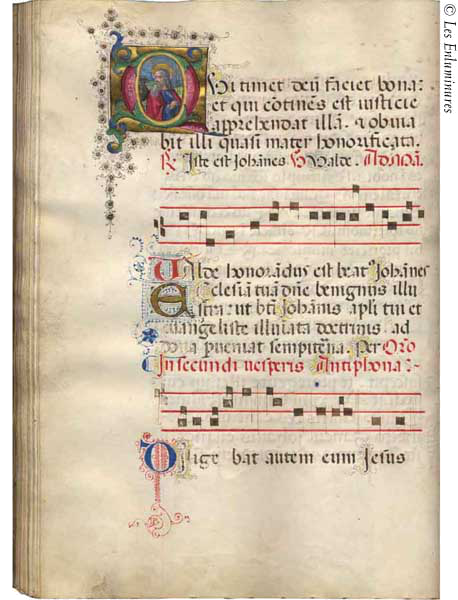 Qui timet deū faciet bona:
et qui cōtinēs est iusticie
apprehendet illā. & obvia
bit illi quasi mater honorificata.
℟ Iste est Johānes ℣ Valde. Ad nonā.
Valde honorādus est beatꝰ Johānes
Ecclesiā tuā dn̄e benignus illu
stra: ut bt̄i Johānis apl̄i tui et
euangeliste illuīata doctrinis. ad
dona pueniat sempit̄na. Per Oro
In secundis uesperis Antiphona:
Dilige bat autem eum Jesus
© Les Enluminures